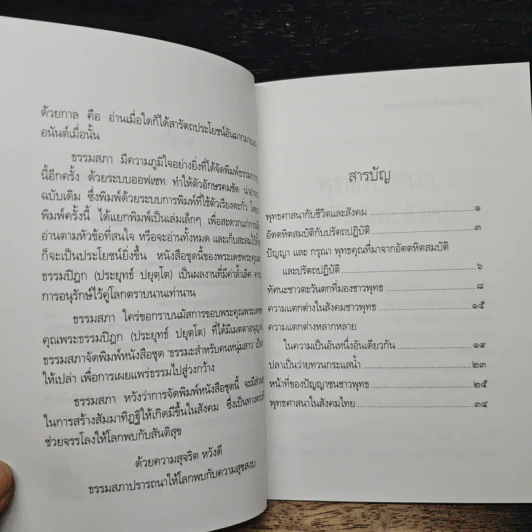 ด้วยกาล คือ อ่านเมื่อใดก็ได้สารัตถประโยชน์อันมากมาย
อนันต์เมื่อนั้น
ธรรมสภา มีความภูมิใจอย่างยิ่งที่ได้จัดพิมพ์ธรรมกถา
นี้อีกครั้ง ด้วยระบบออฟเซท ทำให้ตัวอักษรคมชัด
ฉบับเดิม ซึ่งพิมพ์ด้วยระบบการพิมพ์ที่ใช้ตัวเรียงตะกั่ว
พิมพ์ครั้งนี้ ได้แยกพิมพ์เป็นเล่มเล็กๆ เพื่อสะดวกแก่การ
อ่านตามหัวข้อที่สนใจ หรือจะอ่านทั้งหมด และเก็บสะสมไว้
ก็จะเป็นประโยชน์ยิ่งขึ้น หนังสือชุดนี้ของพระเดชพระคุณ
ธรรมปิฎก (ประยุทธ์ ปยุตฺโต) เป็นผลงานที่มีค่าล้ำเลิศ
การอนุรักษ์ไว้คู่โลกตราบนานเท่านาน
ธรรมสภา ใคร่ขอกราบนมัสการขอบพระคุณพระเดช
คุณพระธรรมปิฎก (ประยุทธ์ ปยุตฺโต) ที่ได้มีเมตตาอนุญาต
ธรรมสภาจัดพิมพ์หนังสือชุด 'ธรรมะสำหรับคนหนุ่มสาว'
ให้เปล่า เพื่อการเผยแพร่ธรรมไปสู่วงกว้าง
ธรรมสภา หวังว่าการจัดพิมพ์หนังสือชุดนี้ จะมีส่วน
ในการสร้างสัมมาทิฏฐิให้เกิดมีขึ้นในสังคม ซึ่งเป็นทาง
ช่วยจรรโลงให้โลกพบกับสันติสุข
ด้วยความสุจริต หวังดี
ธรรมสภาปรารถนาให้โลกพบกับความสุขสงบ
สารบัญ
พุทธศาสนากับชีวิตและสังคม ๑
อัตตหิตสมบัติกับปรัตถปฏิบัติ ๓
ปัญญา และ กรุณา พุทธคุณที่มาจากอัตตหิตสมบัติ
และปรัตถปฏิบัติ ๖
ทัศนะชาวตะวันตกที่มองชาวพุทธ ๘
ความแตกต่างในสังคมชาวพุทธ ๑๕
ความแตกต่างหลากหลาย
ในความเป็นอันหนึ่งอันเดียวกัน ๑๙
ปลาเป็นว่ายทวนกระแสน้ำ ๒๓
หน้าที่ของปัญญาชนชาวพุทธ ๒๕
พุทธศาสนาในสังคมไทย ๓๔